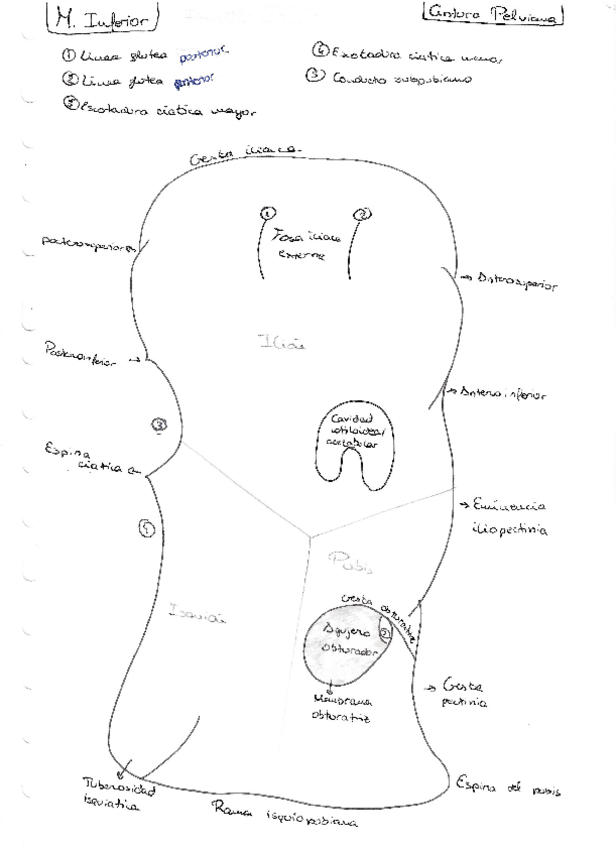 M. Inferior
Cintura Pelviana
① Linea glutea posterior
② Linea glutea anterior
③ Escotadura ciatica mayor
④ Escotadura ciatica menor
⑤ Conducto subpubiano
Cresta iliaca
①
②
Fosa iliaca
externa
posterosuperior
→ Anterosuperior
Ilion
Posteroinferior →
→ Antero inferior
Cavidad
cotiloidea/
acetabular
③
Espina
ciatica
→ Eminencia
iliopectinia
④
Pubis
Cresta obturatriz
Isquion
Agujero
obturador
⑤
Membrana
obturatriz
→ Cresta
pectinia
Tuberosidad
isquiatica
Espina del pubis
Ramea isquiopubiana